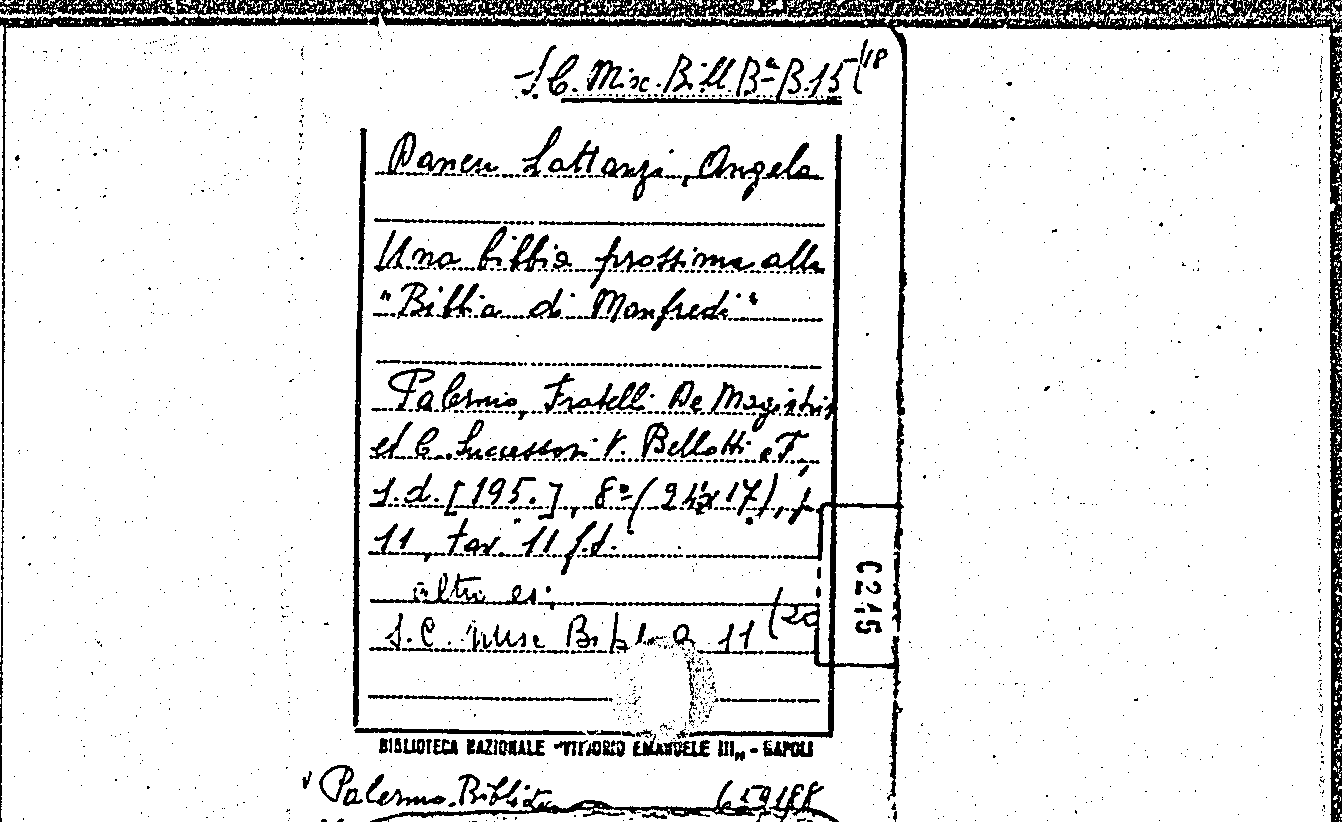 S.C. Misc. Bibl Bª B.15 (18
Daneu Lattanzi, Angela
Una bibbia prossima alla
"Bibbia di Manfredi"
Palermo, Fratelli De Magistris
et C. Successori V. Bellotti e F,
s.d. [195.], 8º (24x17), p
11, tav. 11 f.t.
altro es:
S.C. Misc 11 (20
C245
BIBLIOTECA NAZIONALE "VITTORIO EMANUELE III" - NAPOLI
Palermo. 659188